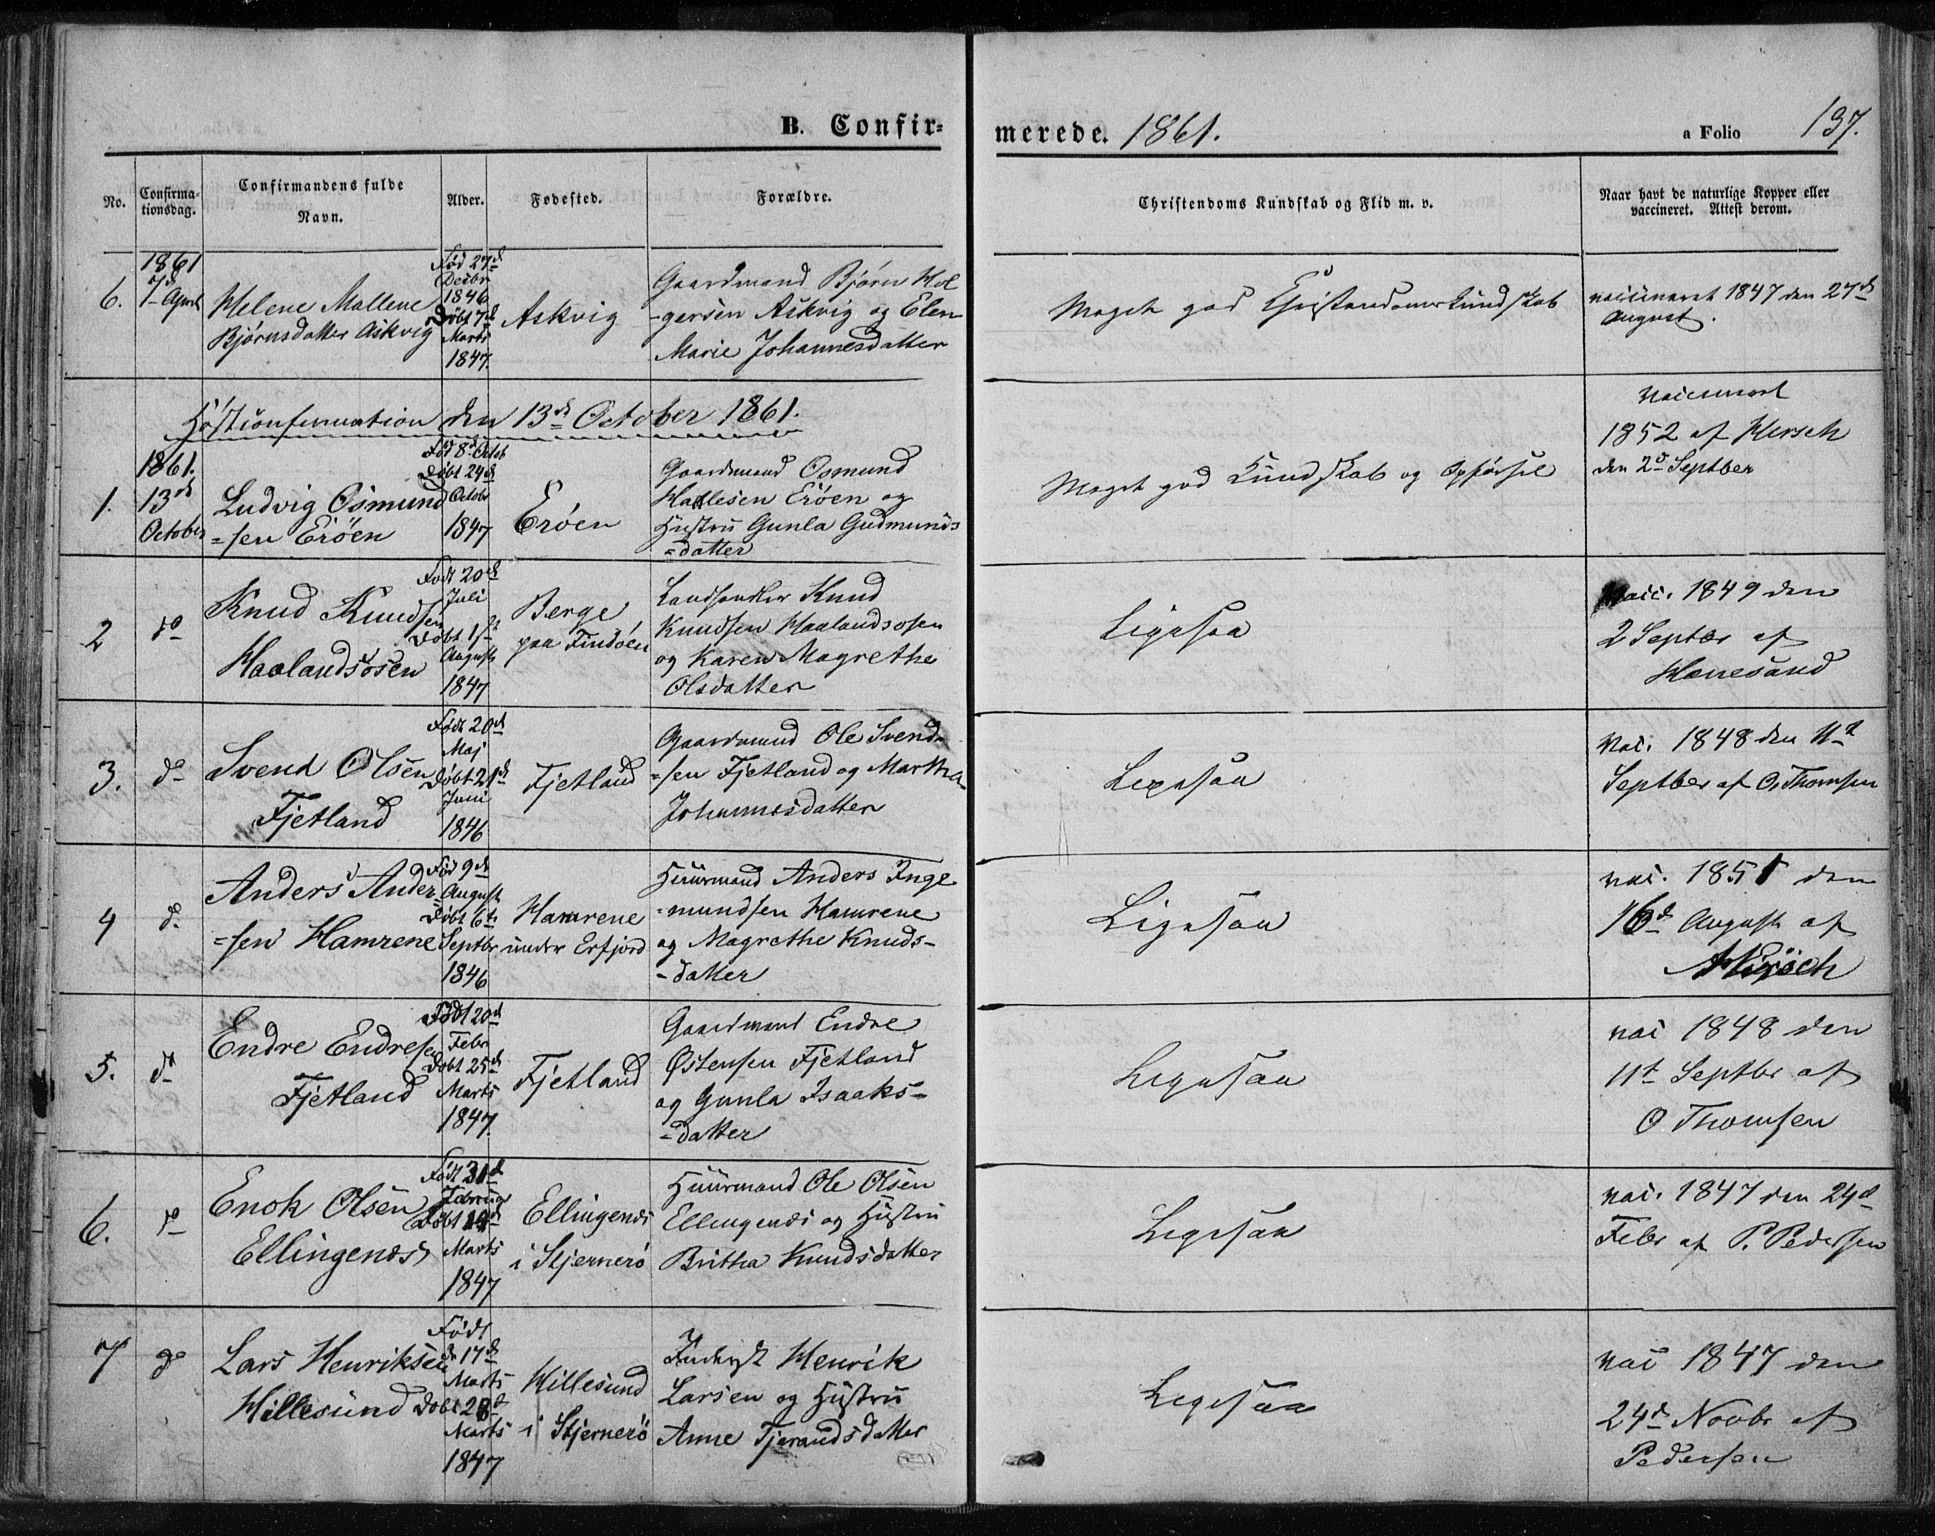 B. Confir=
merede. 1861.
a Folio 137.
No.
Confirma-
tionsdag.
Confirmandens fulde
Navn.
Alder.
Fødested.
Forældre.
Christendoms Kundskab og Flid m. v.
Naar havt de naturlige Kopper eller
vaccineret. Attest derom.
6.
1861
7de April
Helene Mallene
Bjørnsdatter Askvig
Fød 27de
Decbr
1846
Døbt 7de
Marts
1847.
Askvig
Gaardmand Bjørn Hol
-gersen Askvig og Elen
Marie Johannesdatter
Meget god Christendomskundskab
vaccineret 1847 den 27de
August.
Høstconfirmation den 13de October 1861.
1.
1861.
13de
October
Ludvig Osmund
=sen Erøen
Fød 8de Octob
Døbt 24de
Octobr
1847
Erøen
Gaardmand Osmund
Hallesen Erøen og
Hustru Gunla Gudmunds
=datter
Meget god Kundskab og Opførsel
vaccineret
1852 af Hersch
den 2de Septber
2
do
Knud Knudsen
Haalandsosen
Født 20de
Juli
Døbt 1ste
August
1847
Berge
paa Findøen
Landhandler Knud
Knudsen Haalandsosen
og Karen Magrethe
Olsdatter
Ligesaa
vacc. 1849 den
2 Septbr af
Hanesand
3.
do
Svend Olsen
Fjetland
Født 20de
Maj
Døbt 21de
Juni
1846
Fjetland
Gaardmand Ole Svend-
=sen Fjetland og Martha
Johannesdatter
Ligesaa
Vac. 1848 den 11te
Septber af O. Thomsen
4
do
Anders Ander
=sen Hamrene
Fød 9de
August
Døbt 6te
Septbr
1846
Hamrene
under Erfjord
Huusmand Anders Inge
=mundsen Hamrene
og Magrethe Knuds-
-datter
Ligesaa
vac. 1851 den
16de August af
5.
do
Endre Endresen
Fjetland
Født 20de
Febr
Døbt 25de
Marts
1847.
Fjetland
Gaardmand Endre
Østensen Fjetland
og Gunla Isaaks-
=datter
Ligesaa
vac 1848 den
11te Septbr af
O Thomsen
6.
do
Enok Olsen
Ellingenæs
Født
Februar
Døbt
Marts
1847
Ellingenæs
i Stjernerø
Huusmand Ole Olsen
Ellingenæs og Hustru
Britha Knudsdatter
Ligesaa
vac. 1847 den 24de
Febr af P. Pedersen
7
do
Lars Henriksen
Hillesund
Født
d. 17de
Marts
Døbt 28de
Marts
1847
Hillesund
i Stjernerø
Henrik
Larsen og Hustru
Anne Tjerandsdatter
Ligesaa
vac 1847 den
24de Novbr af
Pedersen